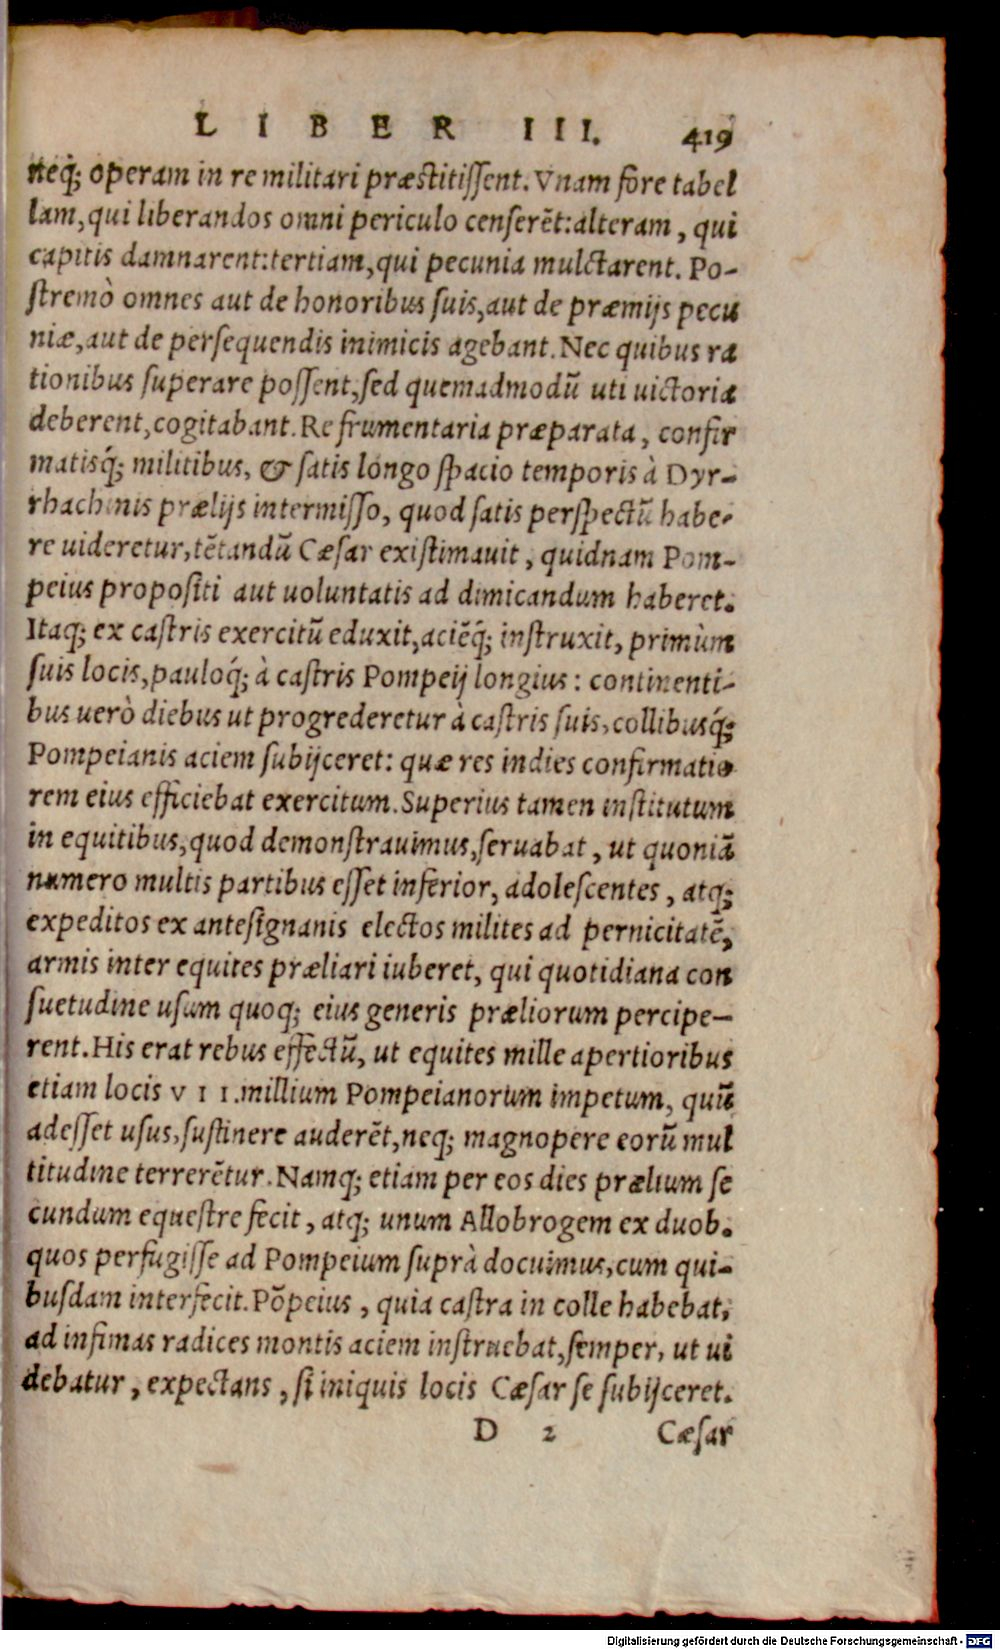 LIBER III. 419
neq́; operam in re militari præstitissent. Vnam fore tabel
lam, qui liberandos omni periculo censerēt: alteram, qui
capitis damnarent: tertiam, qui pecunia mulctarent. Po-
stremò omnes aut de honoribus suis, aut de præmijs pecu
niæ, aut de persequendis inimicis agebant. Nec quibus ra
tionibus superare possent, sed quemadmodū uti uictoria
deberent, cogitabant. Re frumentaria præparata, confir
matisq́; militibus, & satis longo spacio temporis à Dyr-
rhachinis prælijs intermisso, quod satis perspectū habe-
re uideretur, tētandū Cæsar existimauit, quidnam Pom-
peius propositi aut uoluntatis ad dimicandum haberet.
Itaq; ex castris exercitū eduxit, aciēq́; instruxit, primùm
suis locis, pauloq́; à castris Pompeij longius: continenti-
bus uerò diebus ut progrederetur à castris suis, collibusq́;
Pompeianis aciem subijceret: quæ res indies confirmatio
rem eius efficiebat exercitum. Superius tamen institutum
in equitibus, quod demonstrauimus, seruabat, ut quoniā
numero multis partibus esset inferior, adolescentes, atq;
expeditos ex antesignanis electos milites ad pernicitatē,
armis inter equites præliari iuberet, qui quotidiana con
suetudine usum quoq; eius generis præliorum percipe-
rent. His erat rebus effectū, ut equites mille apertioribus
etiam locis VII. millium Pompeianorum impetum, quū
adesset usus, sustinere auderēt, neq; magnopere eorū mul
titudine terrerētur. Namq; etiam per eos dies prælium se
cundum equestre fecit, atq; unum Allobrogem ex duob.
quos perfugisse ad Pompeium suprà docuimus, cum qui-
busdam interfecit. Pōpeius, quia castra in colle habebat,
ad infimas radices montis aciem instruebat, semper, ut ui
debatur, expectans, si iniquis locis Cæsar se subijceret.
D 2 Cæsar
Digitalisierung gefördert durch die Deutsche Forschungsgemeinschaft - DFG